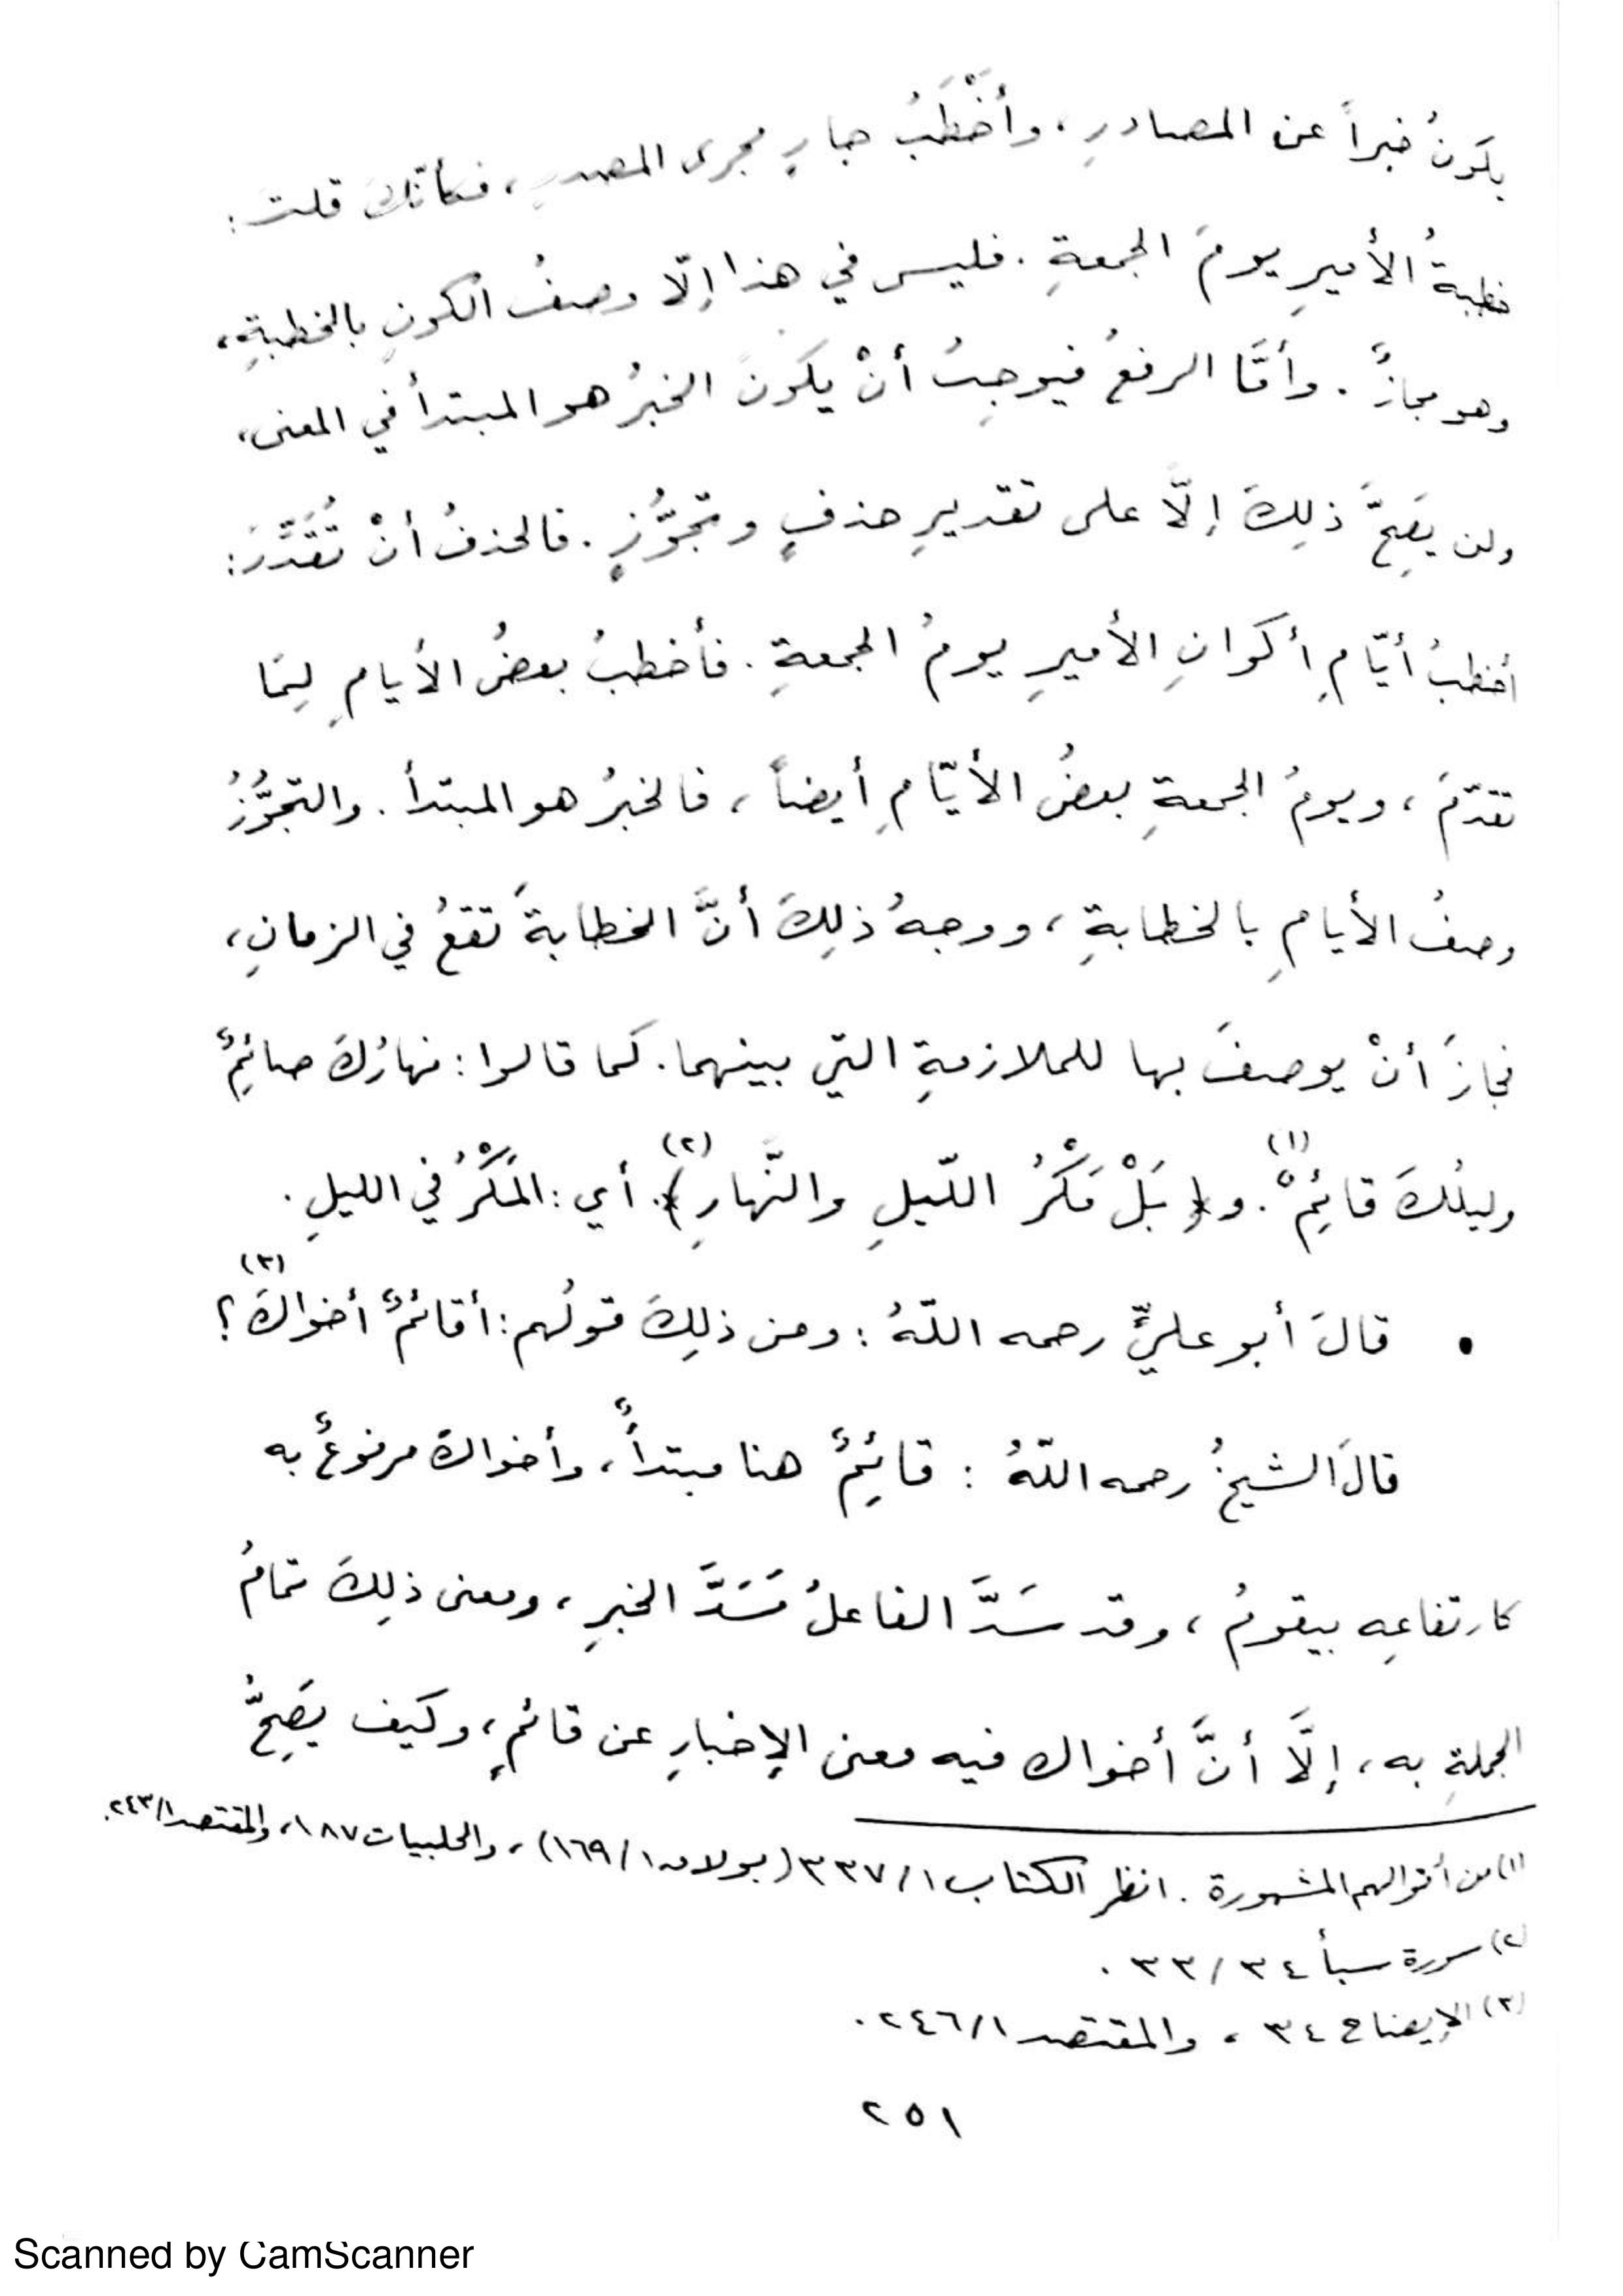 يكونُ خبراً عن المصادرِ، وأَخْطَبُ جارٍ مجرى المصدرِ، فكأنّكَ قلتَ:
خطبةُ الأميرِ يومَ الجمعةِ. فليس في هذا إلّا وصفُ الكونِ بالخطبةِ،
وهو مجازٌ. وأمَّا الرفعُ فيوجِبُ أنْ يكونَ الخبرُ هو المبتدأ في المعنى،
ولن يَصِحَّ ذلِكَ إلّا على تقديرِ حذفٍ وتجوُّزٍ. فالحذفُ أنْ تُقَدِّرَ:
أخطبُ أيّامِ أكوانِ الأميرِ يومُ الجمعةِ. فأخطبُ بعضُ الأيامِ لِمَا
تقدّمَ، ويومُ الجمعةِ بعضُ الأيّامِ أيضاً، فالخبرُ هو المبتدأ. والتجوُّزُ
وصفُ الأيامِ بالخطابةِ، ووجهُ ذلِكَ أنَّ الخطابةَ تقعُ في الزمانِ،
فجازَ أنْ يوصفَ بها للملازمةِ التي بينهما. كما قالوا: نهارُكَ صائِمٌ
وليلُكَ قائِمٌ(١). و﴿بَلْ مَكْرُ اللّيلِ والنَّهارِ﴾(٢). أي: المَكْرُ في الليلِ.
• قالَ أبو عليٍّ رحمه اللّهُ: ومن ذلِكَ قولُهم: أقائمٌ أخواكَ(٣)؟
قالَ الشيخُ رحمه اللّهُ: قائِمٌ هنا مبتدأٌ، وأخواكَ مرفوعٌ به
كارتفاعِه بيقومُ، وقد سَدَّ الفاعلُ مَسَدَّ الخبرِ، ومعنى ذلِكَ تمامُ
الجملةِ به، إلَّا أنَّ أخواك فيه معنى الإخبارِ عن قائمٍ، وكيف يَصِحُّ
(١) من أقوالهم المشهورة. انظر الكتاب ٣٣٧/١ (بولاق ١٦٩/١)، والحلبيات ١٨٧، والمقتصد ٢٤٣/١.
(٢) سورة سبأ ٣٣/٣٤.
(٣) الإيضاح ٣٤، والمقتصد ٢٤٦/١.
٢٥١
Scanned by CamScanner